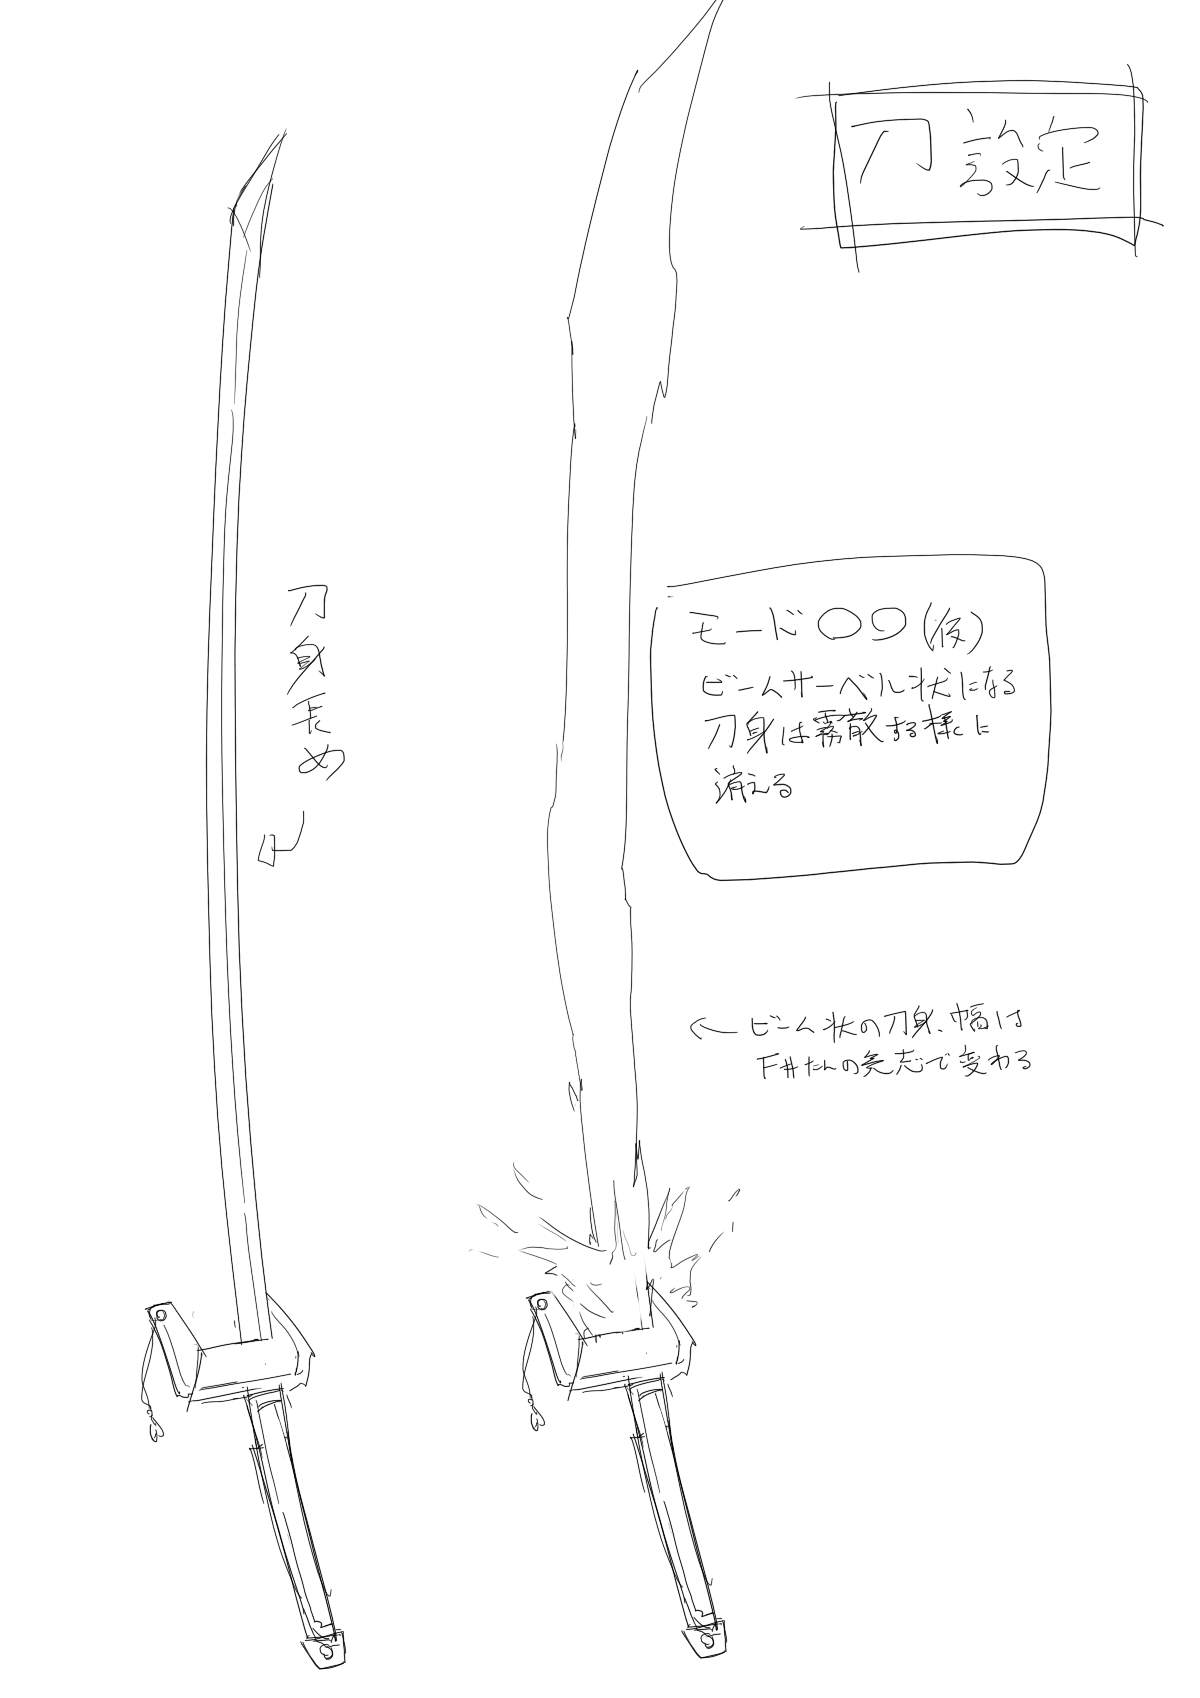 刀設定
刀身長め
モード〇〇(仮)
ビームサーベル状になる
刀身は霧散する様に
消える
← ビーム状の刀身、幅は
F#たんの意志で変わる